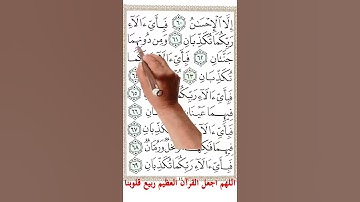 إِلَّا ٱلْإِحْسَٰنُ ٦٠ فَبِأَىِّ ءَالَآءِ
رَبِّكُمَا تُكَذِّبَانِ ٦١ وَمِن دُونِهِمَا
جَنَّتَانِ ٦٢ فَبِأَىِّ ءَالَآءِ
تُكَذِّبَانِ ٦٣
فَبِأَىِّ ءَالَآءِ رَبِّكُمَا ٦٥
فِيهِمَا عَيْنَانِ ٦٦
فَبِأَىِّ ءَالَآءِ
فِيهِمَا وَنَخْلٌ وَرُمَّانٌ ٦٨
فَبِأَىِّ ءَالَآءِ رَبِّكُمَا تُكَذِّبَانِ ٦٩
اللهم اجعل القرآن العظيم ربيع قلوبنا